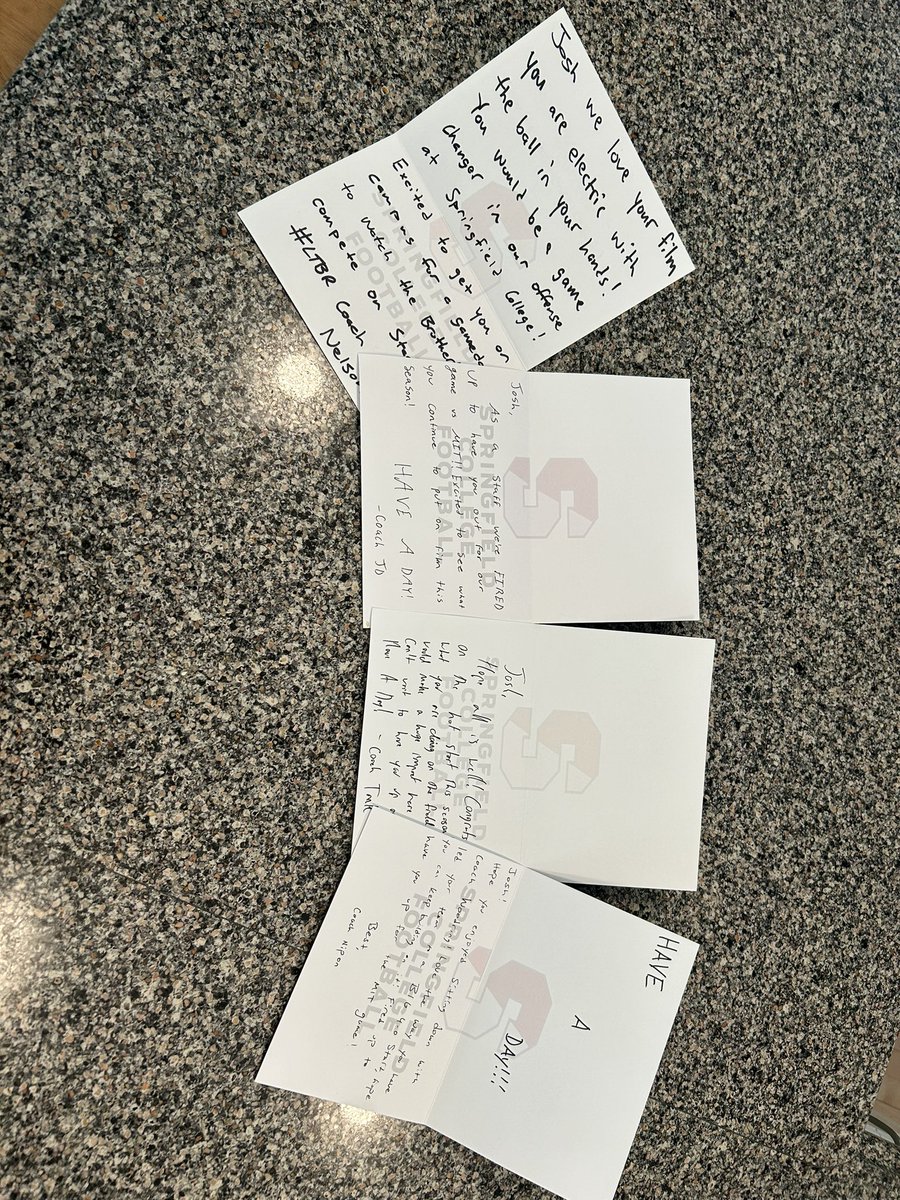 Josh we love your film
you are electric with
the ball in your hands!
You would be a game
changer in our offense
at Springfield College!
Excited to get you on
campus for a gameda
to watch the Brother
compete on Sta
#LTBR Coach
Nelson
SPRINGFIELD
COLLEGE
FOOTBALL
Josh,
As a staff we're FIRED
UP to have you out for our
game vs MIT!! Excited to see what
you continue to put on film this
season!
HAVE A DAY!
-Coach JD
SPRINGFIELD
COLLEGE
FOOTBALL
Josh,
Hope all is well! Congrats
on the hot start this season
what you are doing on the field
would make a huge impact here
Can't wait to have you up
Have A Day! - Coach
SPRINGFIELD
COLLEGE
FOOTBALL
HAVE
A
DAY!!!
Josh,
Hope you enjoyed sitting down with
Coach
you can keep
have you up for the MIT game!
Best,
Coach Nipon
SPRINGFIELD
COLLEGE
FOOTBALL